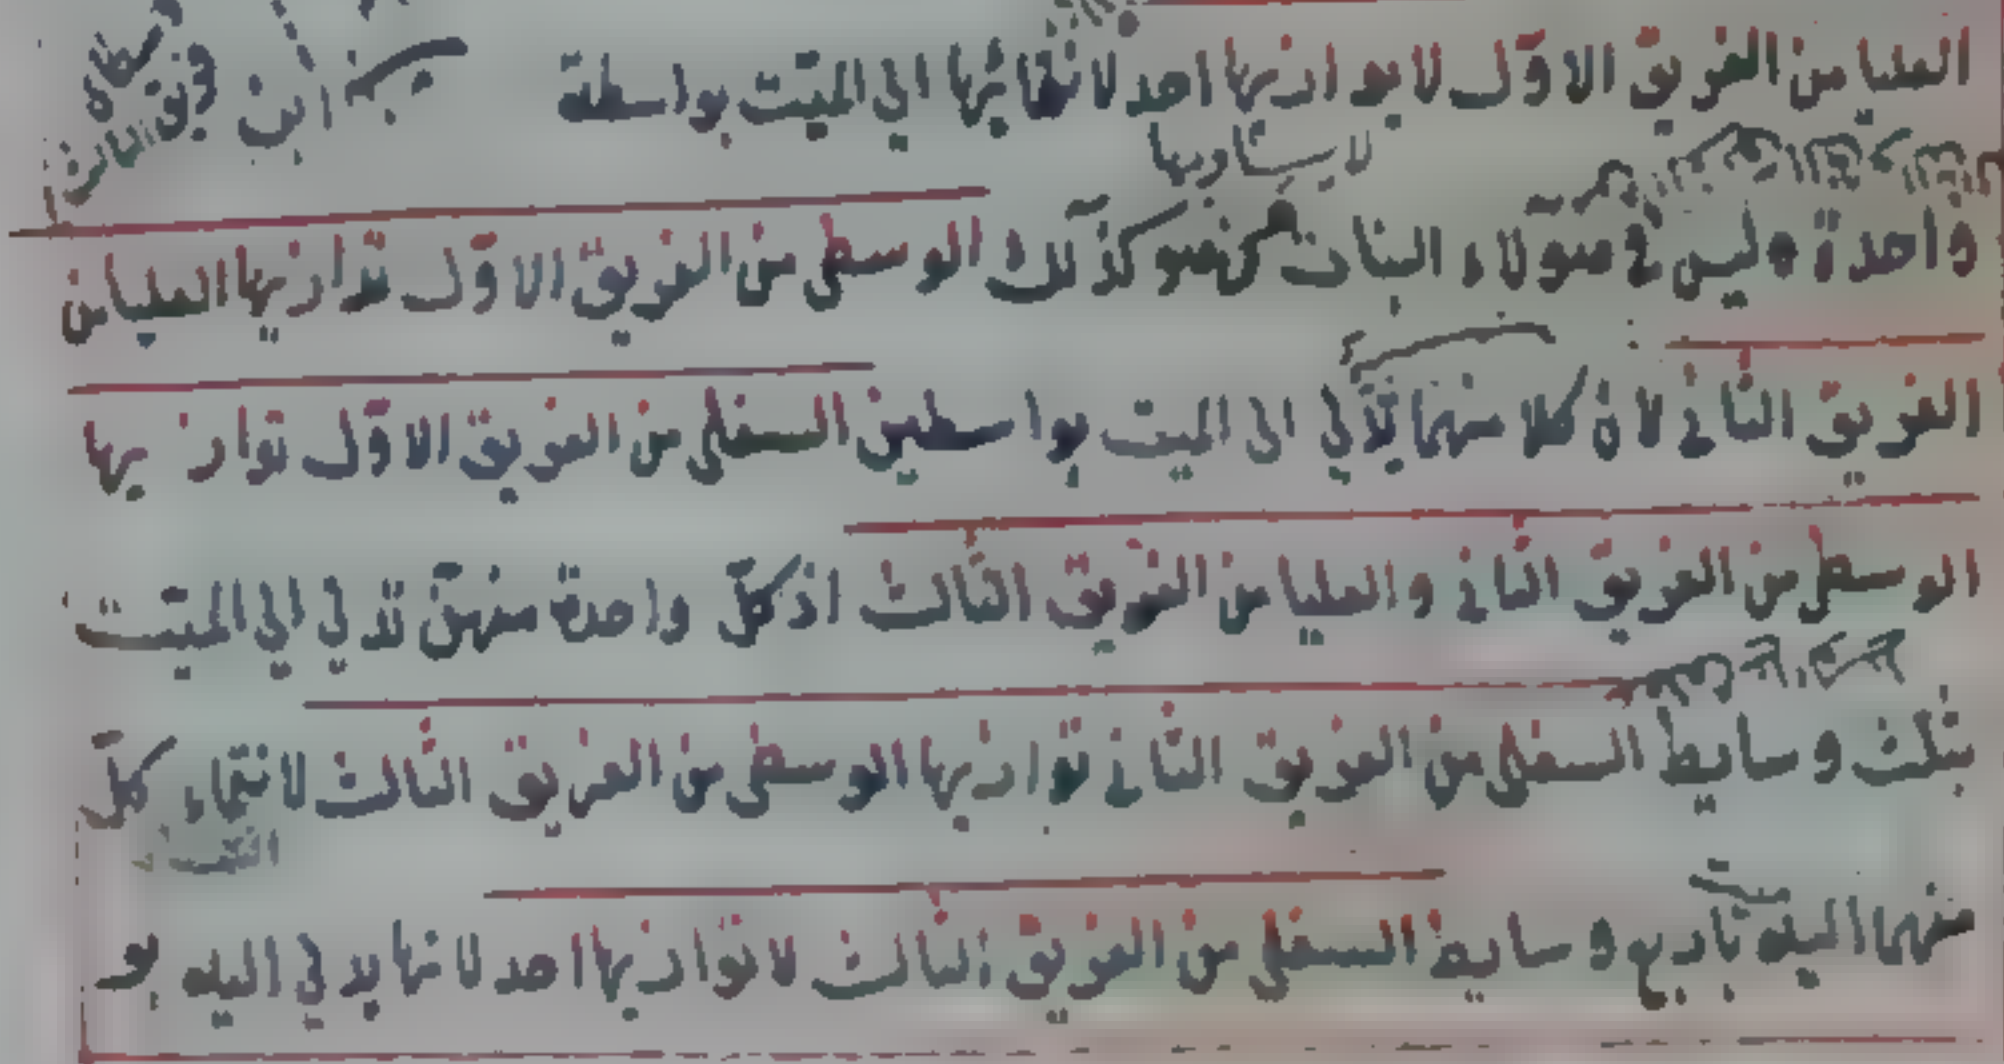 العليا من الفريق الاوّل لا يوازيها احد لانتمائها الى الميّت بواسطة
لا يساويها
واحدة وليس فى هولاء البنات من هو كذلك الوسطى من الفريق الاوّل توازيها العليا من
الفريق الثانى لان كلا منهما تدلي الى الميت بواسطتين السفلى من الفريق الاوّل توازيها
الوسطى من الفريق الثانى والعليا من الفريق الثالث اذ كلّ واحدة منهنّ تدلي الي الميّت
بثلث وسايط السفلى من الفريق الثانى توازيها الوسطى من الفريق الثالث لانتماء كلّ
منهما اليه باربع وسايط السفلى من الفريق الثالث لا توازيها احد لانها تدلي اليه بو